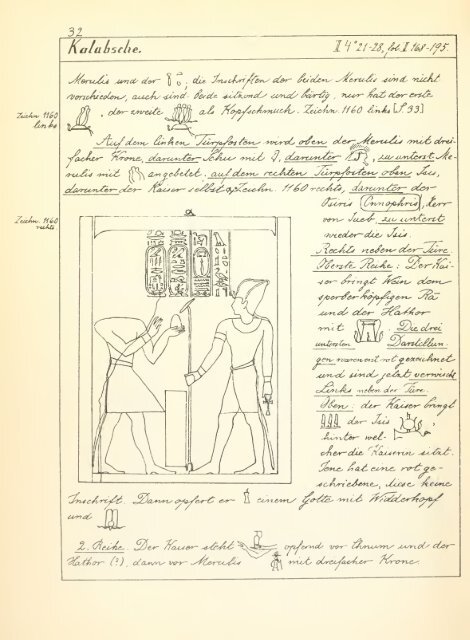 32
Kalabsche.
II 4° 21-28, fol. II 168-195.
Merulis und der , die Inschriften der beiden Merulis sind nicht
verschieden, auch sind beide sitzend und bärtig, nur hat der erste
Zeichn. 1160
links
, der zweite als Kopfschmuck. Zeichn. 1160 links [S. 33]
Auf dem linken Türpfosten wird oben der Merulis mit drei-
facher Krone, darunter Schu mit , darunter , zu unterst Me-
rulis mit angebetet, auf dem rechten Türpfosten oben Isis,
darunter der Kaiser selbst Zeichn. 1160 rechts, darunter der
Zeichn. 1160
rechts
Osiris (Onnophris), Herr
von Iueb zu unterst
wieder die Isis.
Rechts neben der Türe.
Oberste Reihe: Der Kai-
ser bringt Wein dem
sperberköpfigen Ra
und der Hathor
mit . Die drei
untersten Darstellun-
gen waren erst rot gezeichnet
und sind jetzt verwischt
Links neben der Türe.
Oben: der Kaiser bringt
der Isis ,
hinter wel-
cher die Kaiserin sitzt.
Jene hat eine rot ge-
schriebene, diese keine
Inschrift. Dann opfert er einem Gotte mit Widderkopf
und
2. Reihe. Der Kaiser steht opfernd vor Chnum und der
Hathor (?), dann vor Merulis mit dreifacher Krone.